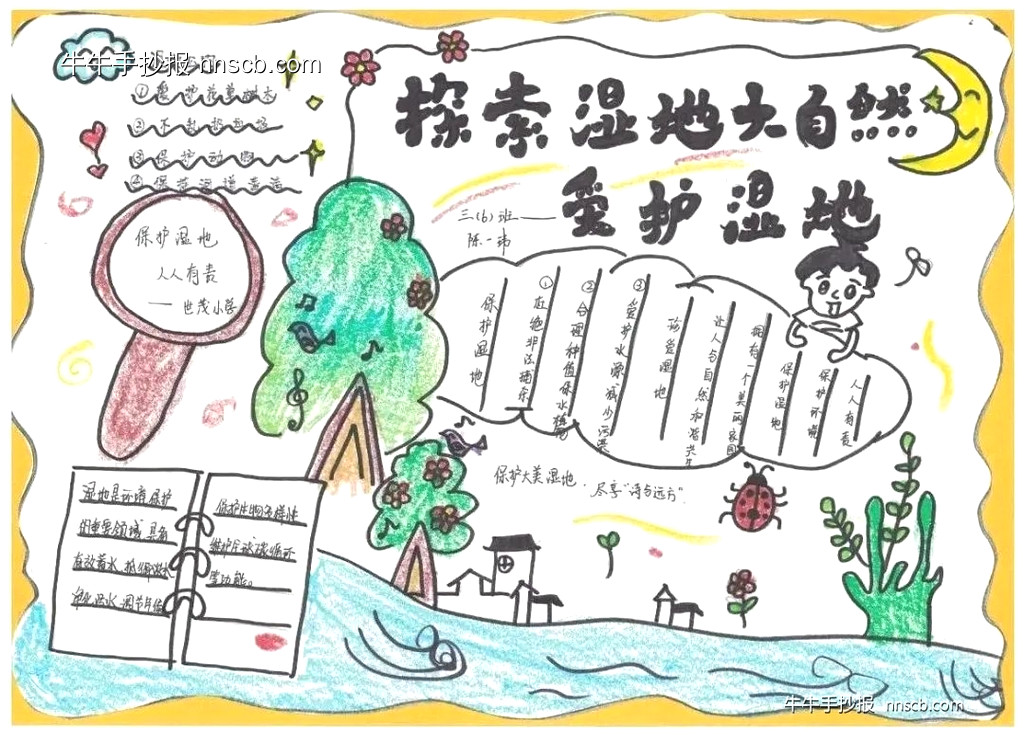 牛牛手抄报 nnscb.com
①爱护花草树木
②不乱扔垃圾
③保护动物
探索湿地大自然
爱护湿地
三(6)班
陈一玮
保护湿地
人人有责
—— 世茂小学
保护湿地
①杜绝非法捕杀
②合理种植保水植物
③爱护水源减少污染
珍爱湿地
让人与自然和谐共生
拥有一个美丽家园
保护湿地
保护环境
人人有责
保护大美湿地，尽享"诗与远方".
湿地是环境保护
的重要领域,具有
蓄水
调节
保护生物多样性
维护
等功能。
牛牛手抄报 nnscb.com